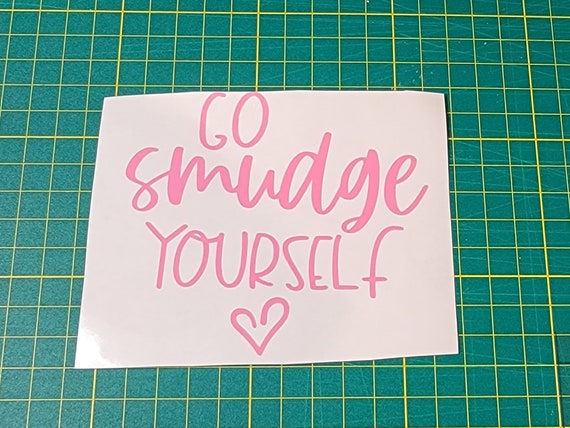 GO
smudge
YOURSELF